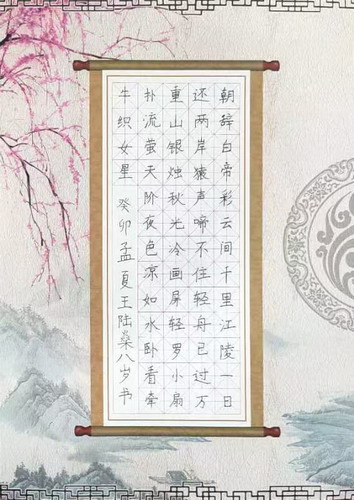 朝辞白帝彩云间千里江陵一日
还两岸猿声啼不住轻舟已过万
重山银烛秋光冷画屏轻罗小扇
扑流萤天阶夜色凉如水卧看牵
牛织女星 癸卯孟夏王陆桑八岁书